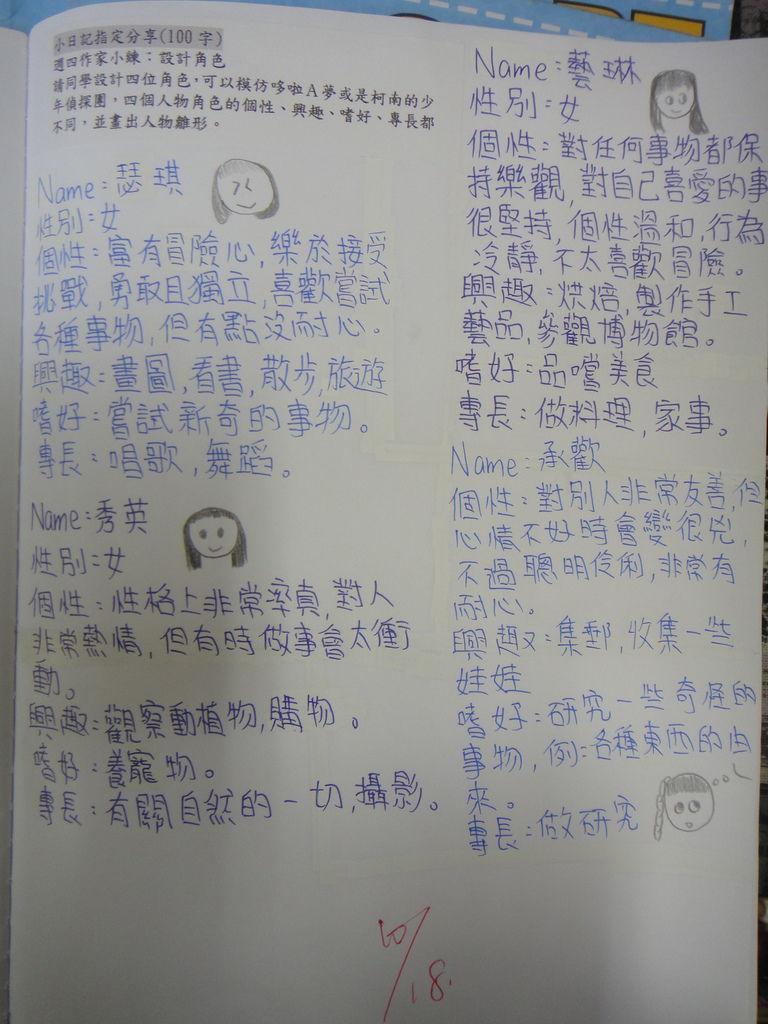 小日記指定分享(100字)
週四作家小鍊：設計角色
請同學設計四位角色，可以模仿哆啦A夢或是柯南的少
年偵探團，四個人物角色的個性、興趣、嗜好、專長都
不同，並畫出人物雛形。
Name：瑟琪
性別：女
個性：富有冒險心，樂於接受
挑戰，勇敢且獨立，喜歡嘗試
各種事物，但有點沒耐心。
興趣：畫圖，看書，散步，旅遊
嗜好：嘗試新奇的事物。
專長：唱歌，舞蹈。
Name：秀英
性別：女
個性：性格上非常率真，對人
非常熱情，但有時做事會太衝
動。
興趣：觀察動植物，購物。
嗜好：養寵物。
專長：有關自然的一切，攝影。
Name：藝琳
性別：女
個性：對任何事物都保
持樂觀，對自己喜愛的事
很堅持，個性溫和，行為
冷靜，不太喜歡冒險。
興趣：烘焙，製作手工
藝品，參觀博物館。
嗜好：品嚐美食
專長：做料理，家事。
Name：承歡
個性：對別人非常友善，但
心情不好時會變很兇，
不過聰明伶俐，非常有
耐心。
興趣：集郵，收集一些
娃娃
嗜好：研究一些奇怪的
事物，例：各種東西的由
來。
專長：做研究
10/18.